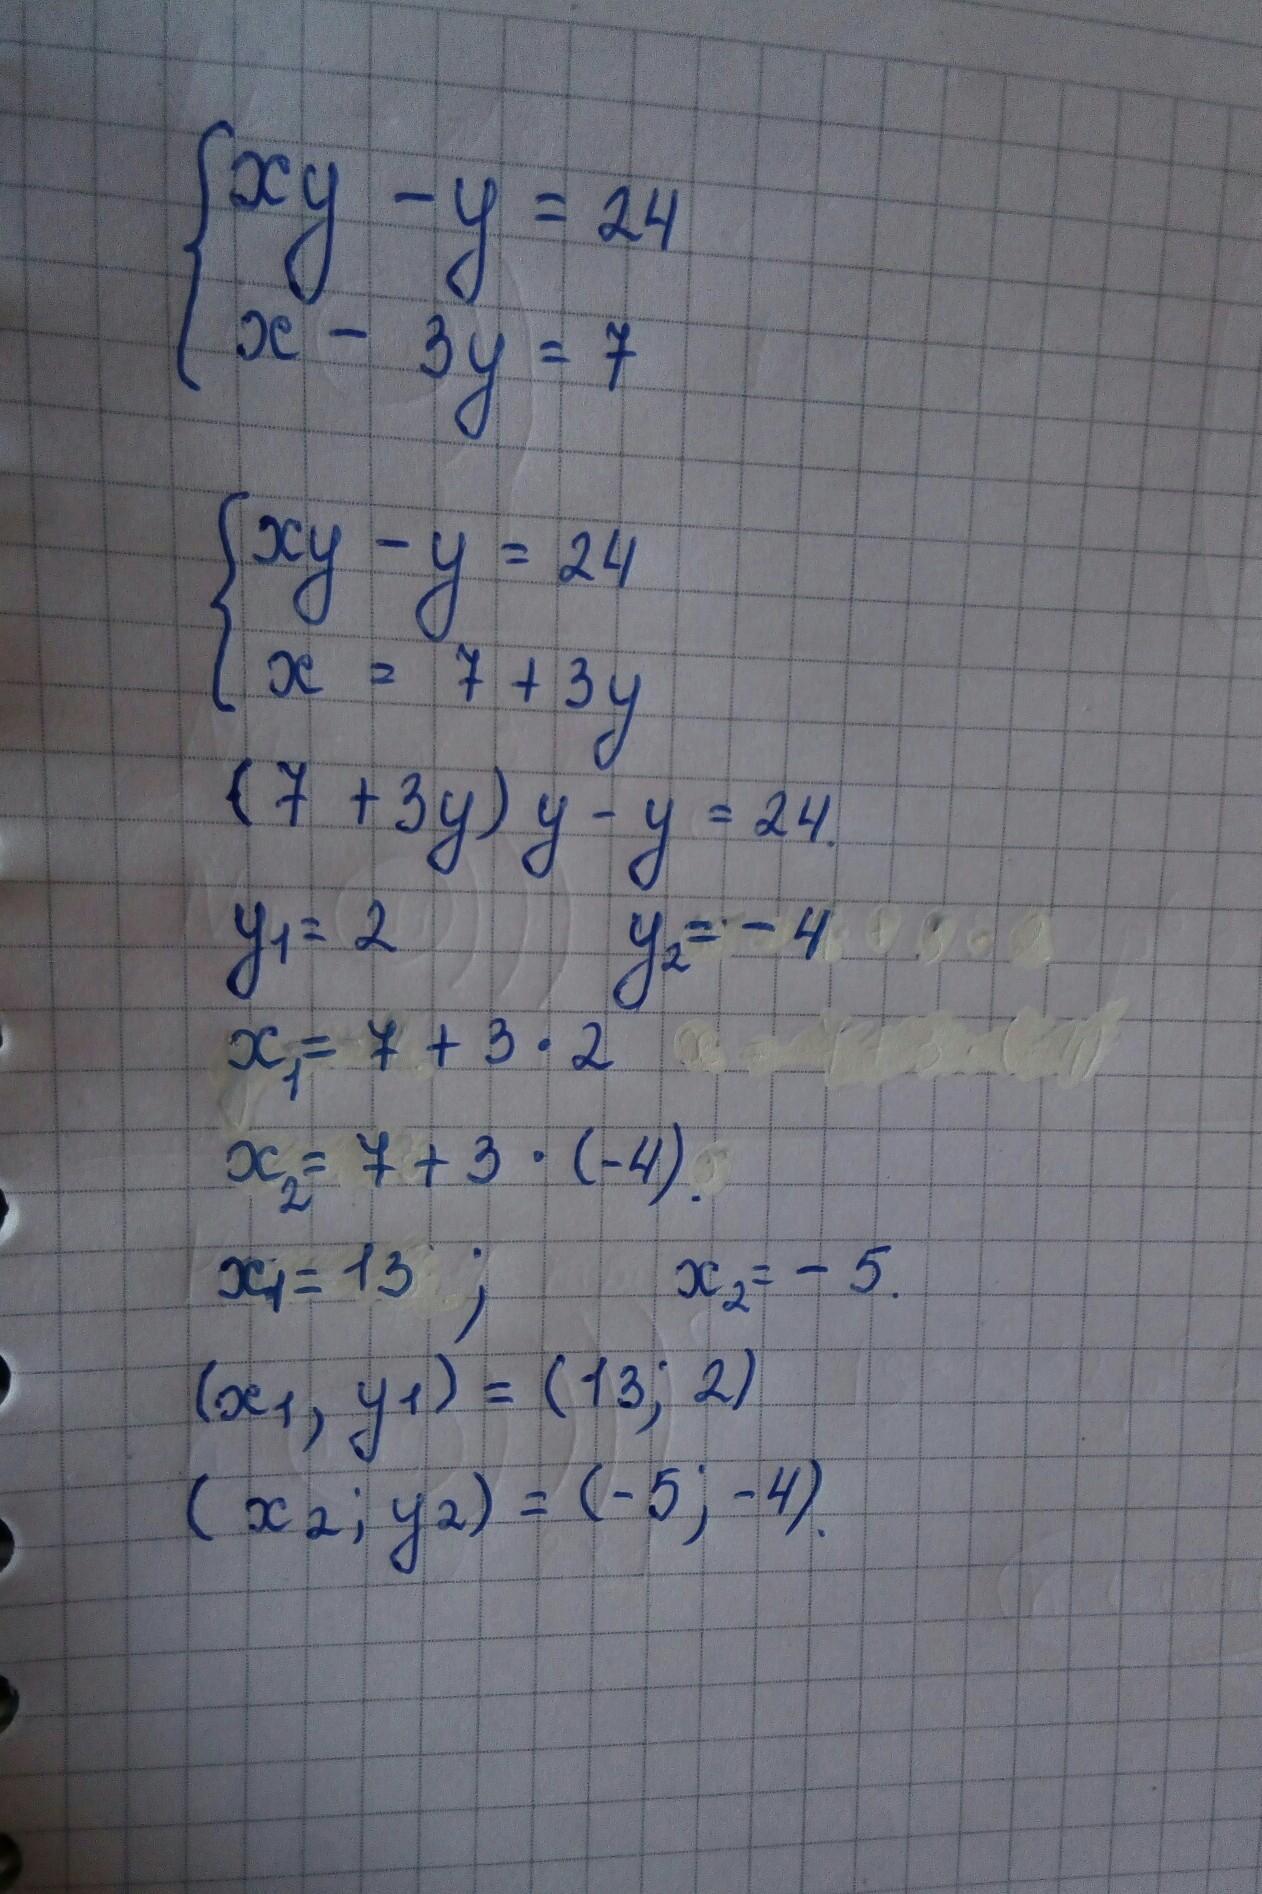 xy - y = 24
x - 3y = 7
xy - y = 24
x = 7 + 3y
(7 + 3y) y - y = 24.
y₁ = 2 y₂ = - 4
x₁ = 7 + 3 · 2
x₂ = 7 + 3 · (-4).
x₁ = 13 ; x₂ = - 5.
(x₁, y₁) = (13; 2)
(x₂; y₂) = (-5; -4).